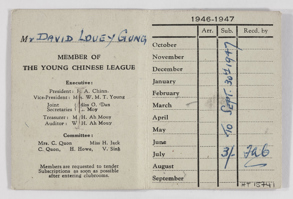 Mr DAVID LOUEY GUNG
MEMBER OF
THE YOUNG CHINESE LEAGUE
Executive:
President: A. Chinn.
Vice-President: W. M. T. Young
Joint
Secretaries
Treasurer: H. Ah Mouy
Auditor: W. H. Ah Mouy
Committee:
Mrs. C. Quon Miss H. Jack
C. Quon, H. Howe, V. Sing
Members are requested to tender
Subscriptions as soon as possible
after entering clubrooms.
1946-1947
Arr. Sub. Recd. by
October
November
December
January
February
March
April
May
June
July 3/-
August
September
TO SEPT. 30th 1947